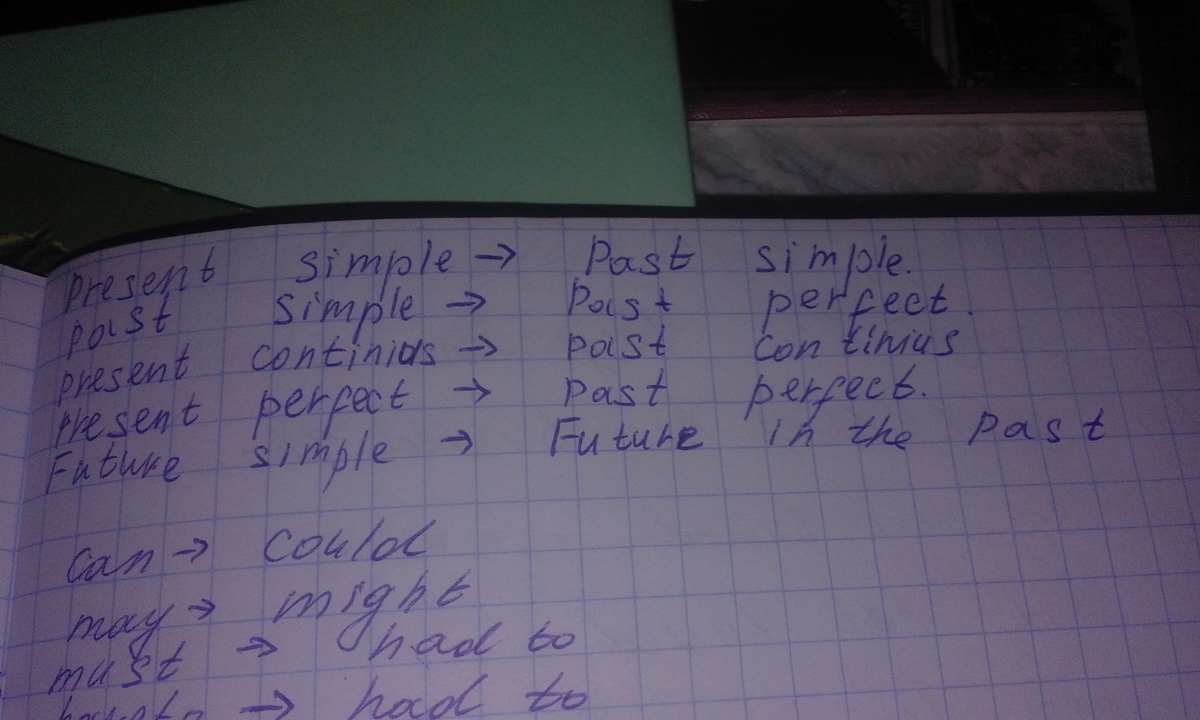 present simple → Past simple.
past simple → Past perfect.
present continius → past continius
present perfect → past perfect.
Future simple → Future in the past
can → could
may → might
must → had to
have to → had to